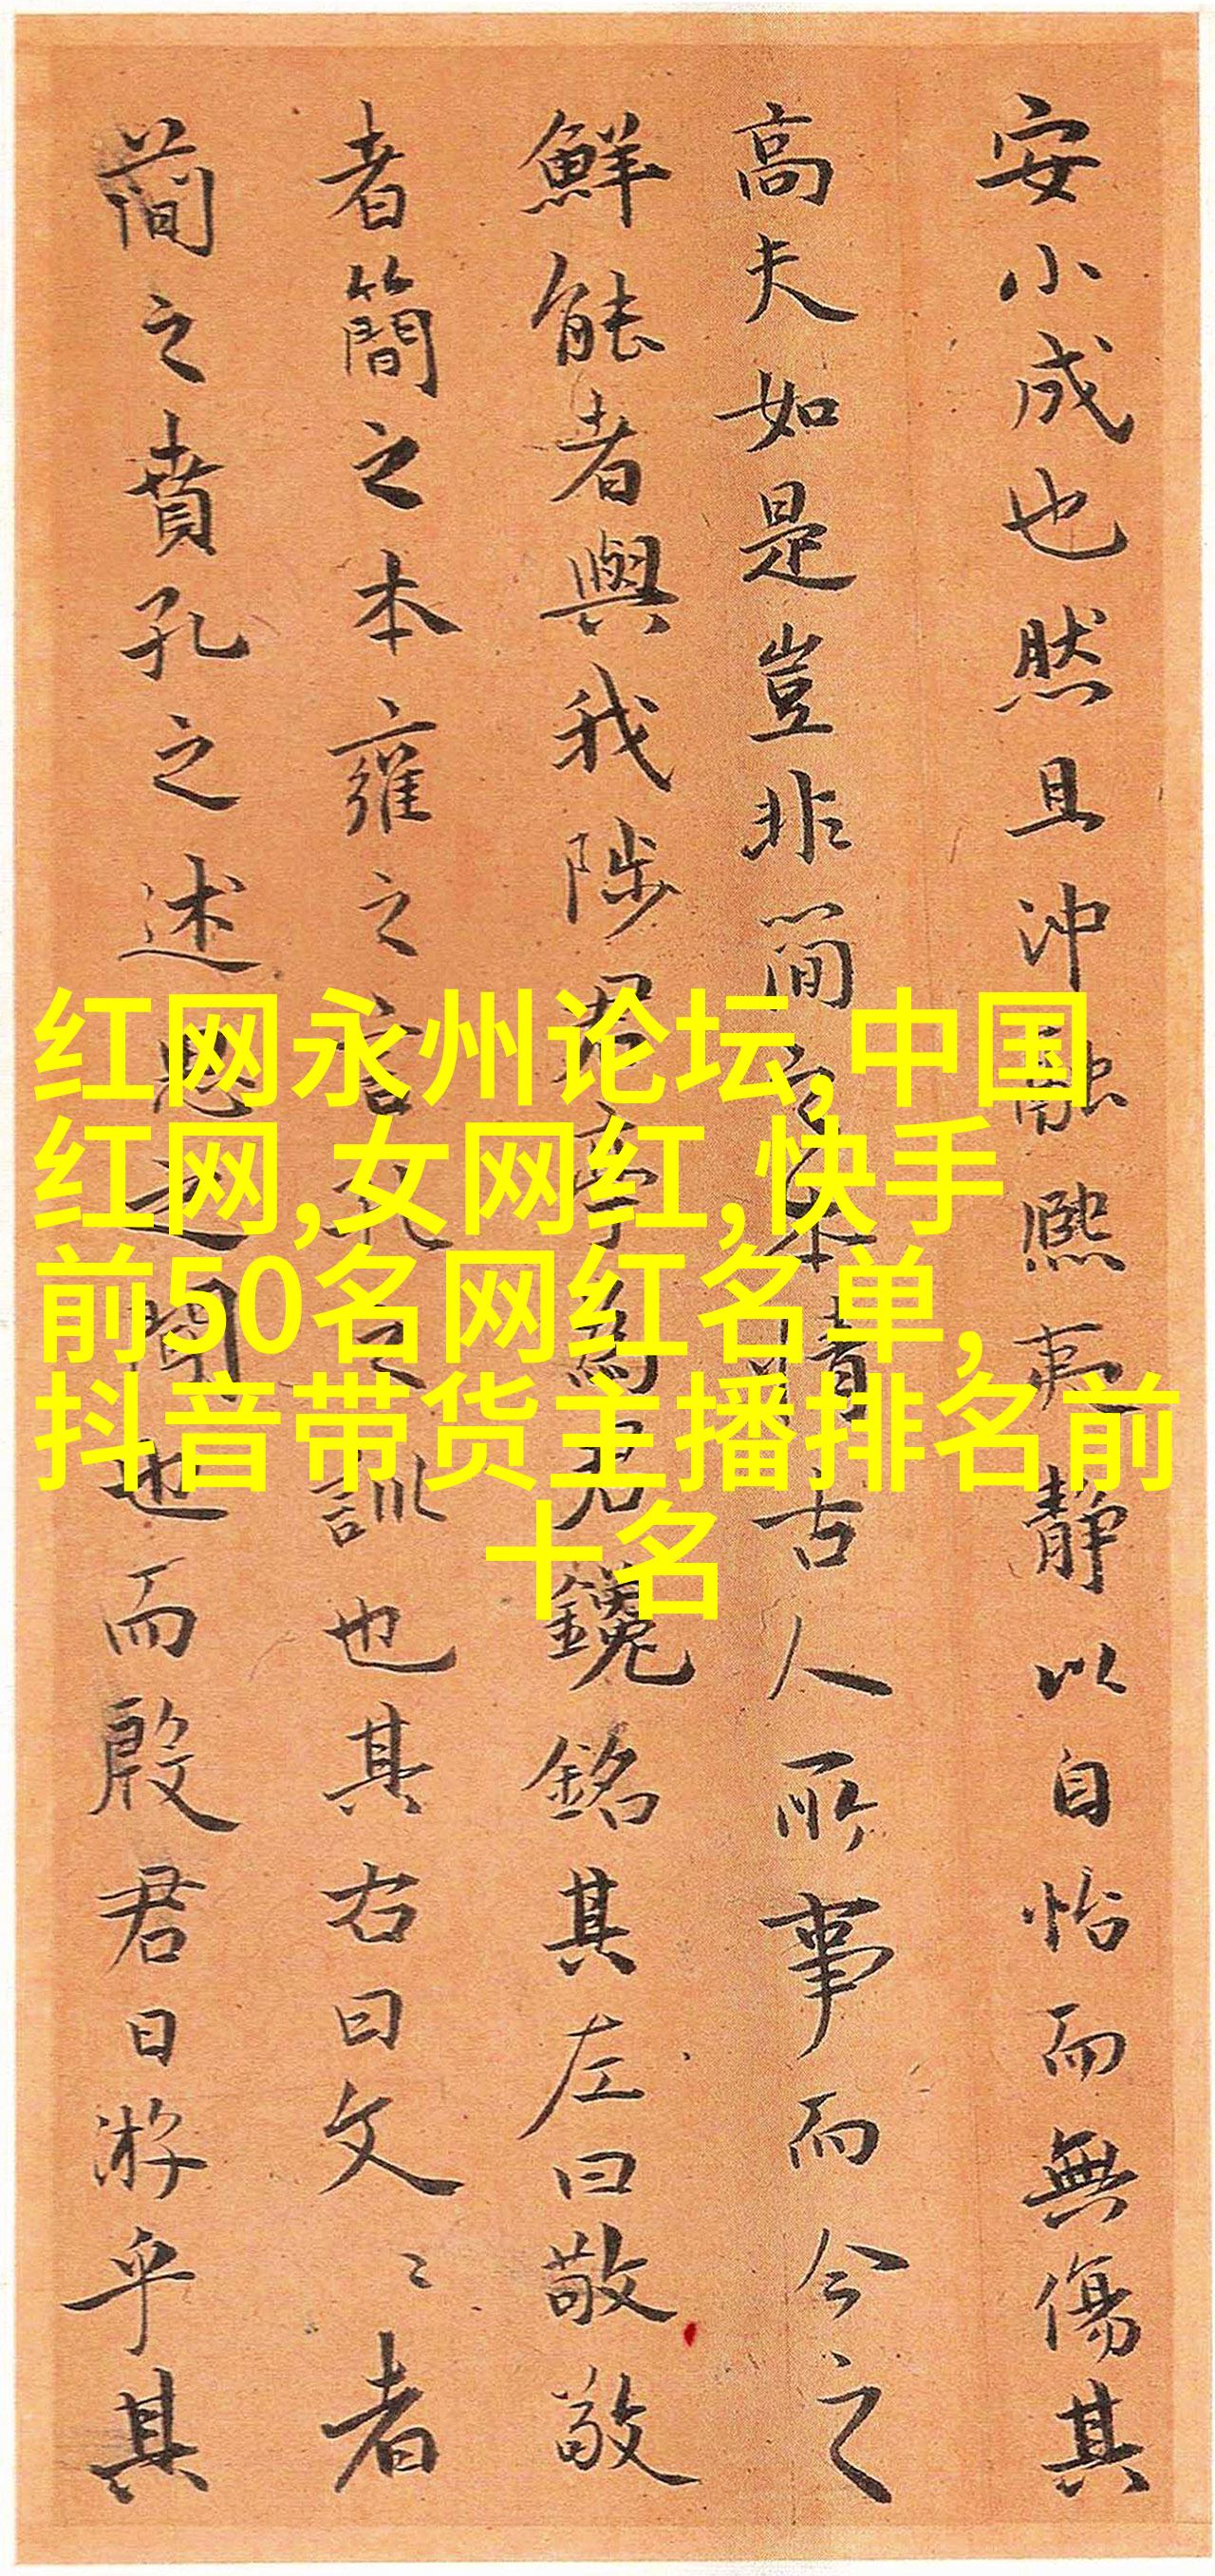 安小成也然且沖融熙夷静以自怡而無傷其
高夫如是豈非簡之本情古人所事而今之
鮮能者與我陟君亭為君鑱銘其左曰敬敬
者簡之本雍之言孔之訓也其右曰文〻者
簡之賁孔之述思之聞也而殷君日游乎其
红网永州论坛,中国
红网,女网红,快手
前50名网红名单,
抖音带货主播排名前
十名